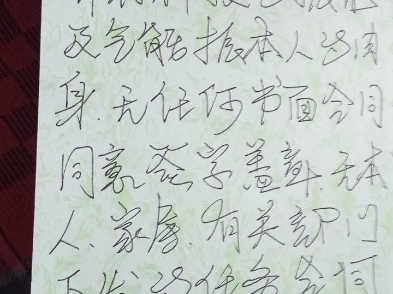 及气能振本人的肉
身.无任何书面合同
同意签字盖章.无本
人、家属.有关部门
下发的任务合同